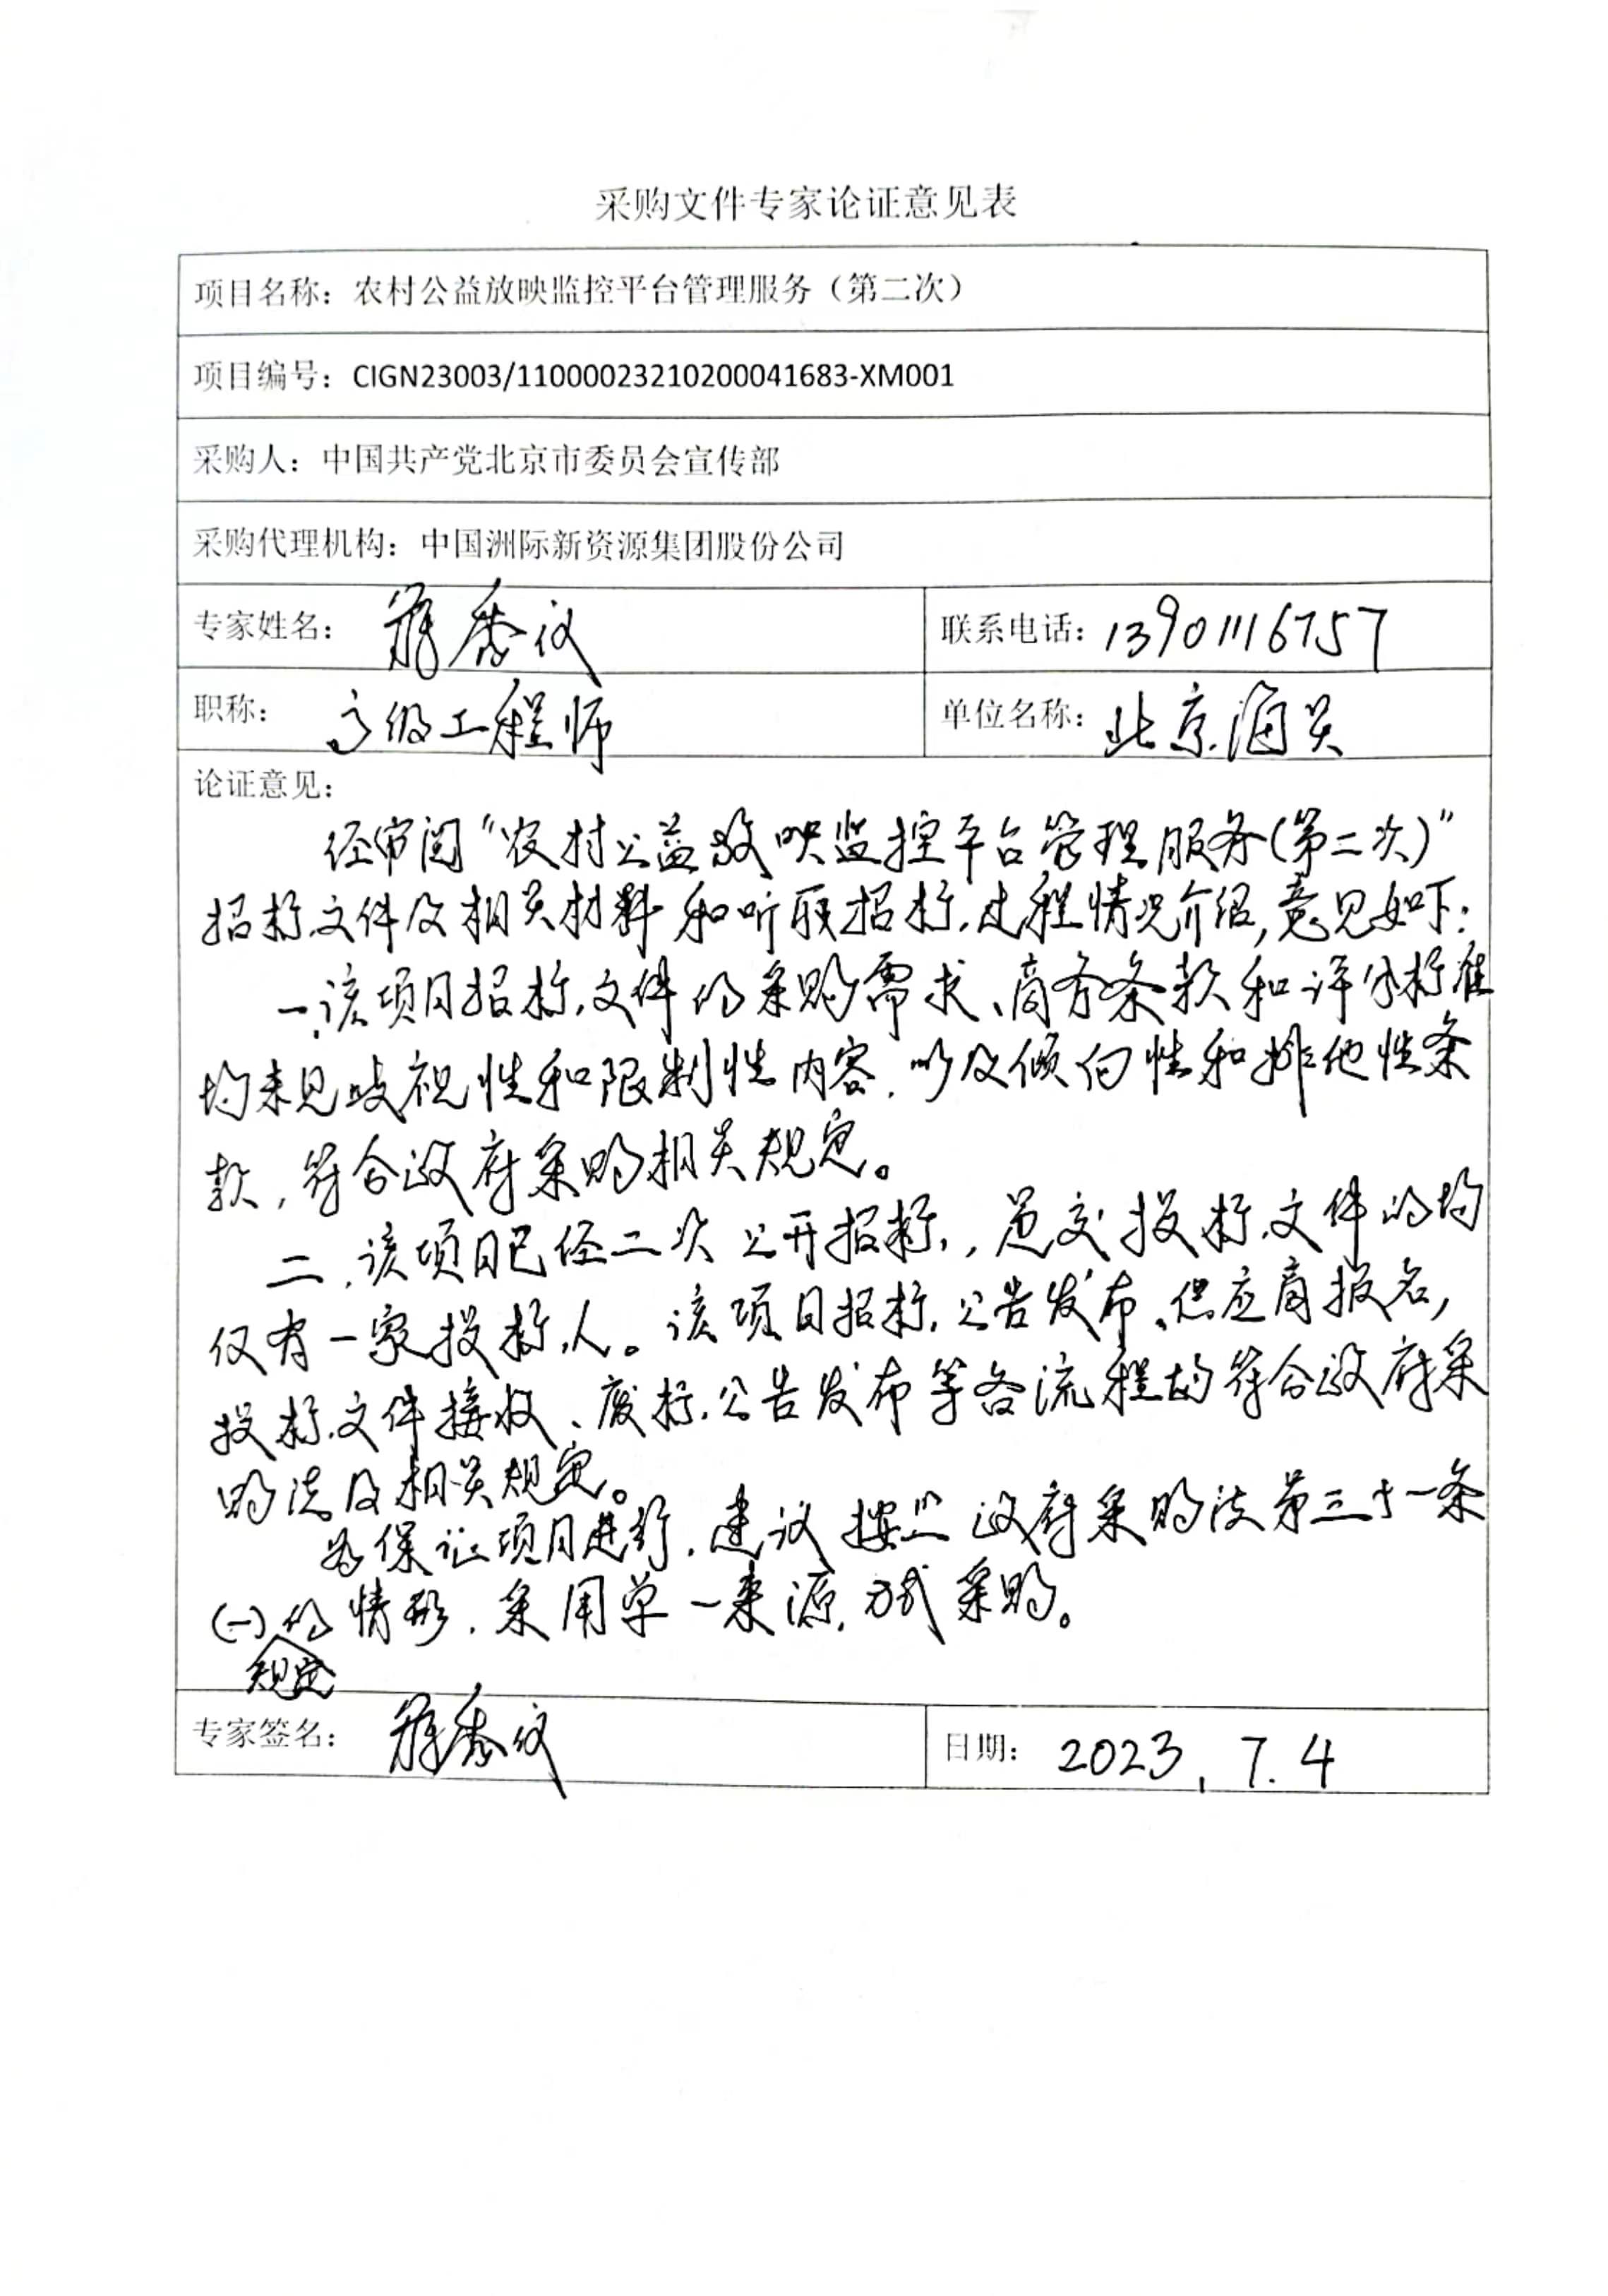 采购文件专家论证意见表
项目名称：农村公益放映监控平台管理服务（第二次）
项目编号：CIGN23003/11000023210200041683-XM001
采购人：中国共产党北京市委员会宣传部
采购代理机构：中国洲际新资源集团股份公司
专家姓名： 联系电话：13901116757
职称：高级工程师 单位名称：北京海关
论证意见：
经审阅“农村公益放映监控平台管理服务(第二次)”
招标文件及相关材料和听取招标过程情况介绍,意见如下：
一、该项目招标文件的采购需求、商务条款和评分标准
均未见歧视性和限制性内容，以及倾向性和排他性条
款，符合政府采购相关规定。
二、该项目已经二次公开招标，递交投标文件的均
仅有一家投标人。该项目招标公告发布、供应商报名，
投标文件接收、废标公告发布等各流程均符合政府采
购法及相关规定。
为保证项目进行，建议按照政府采购法第三十一条
(一)的情形，采用单一来源方式采购。
规定
专家签名： 日期：2023.7.4